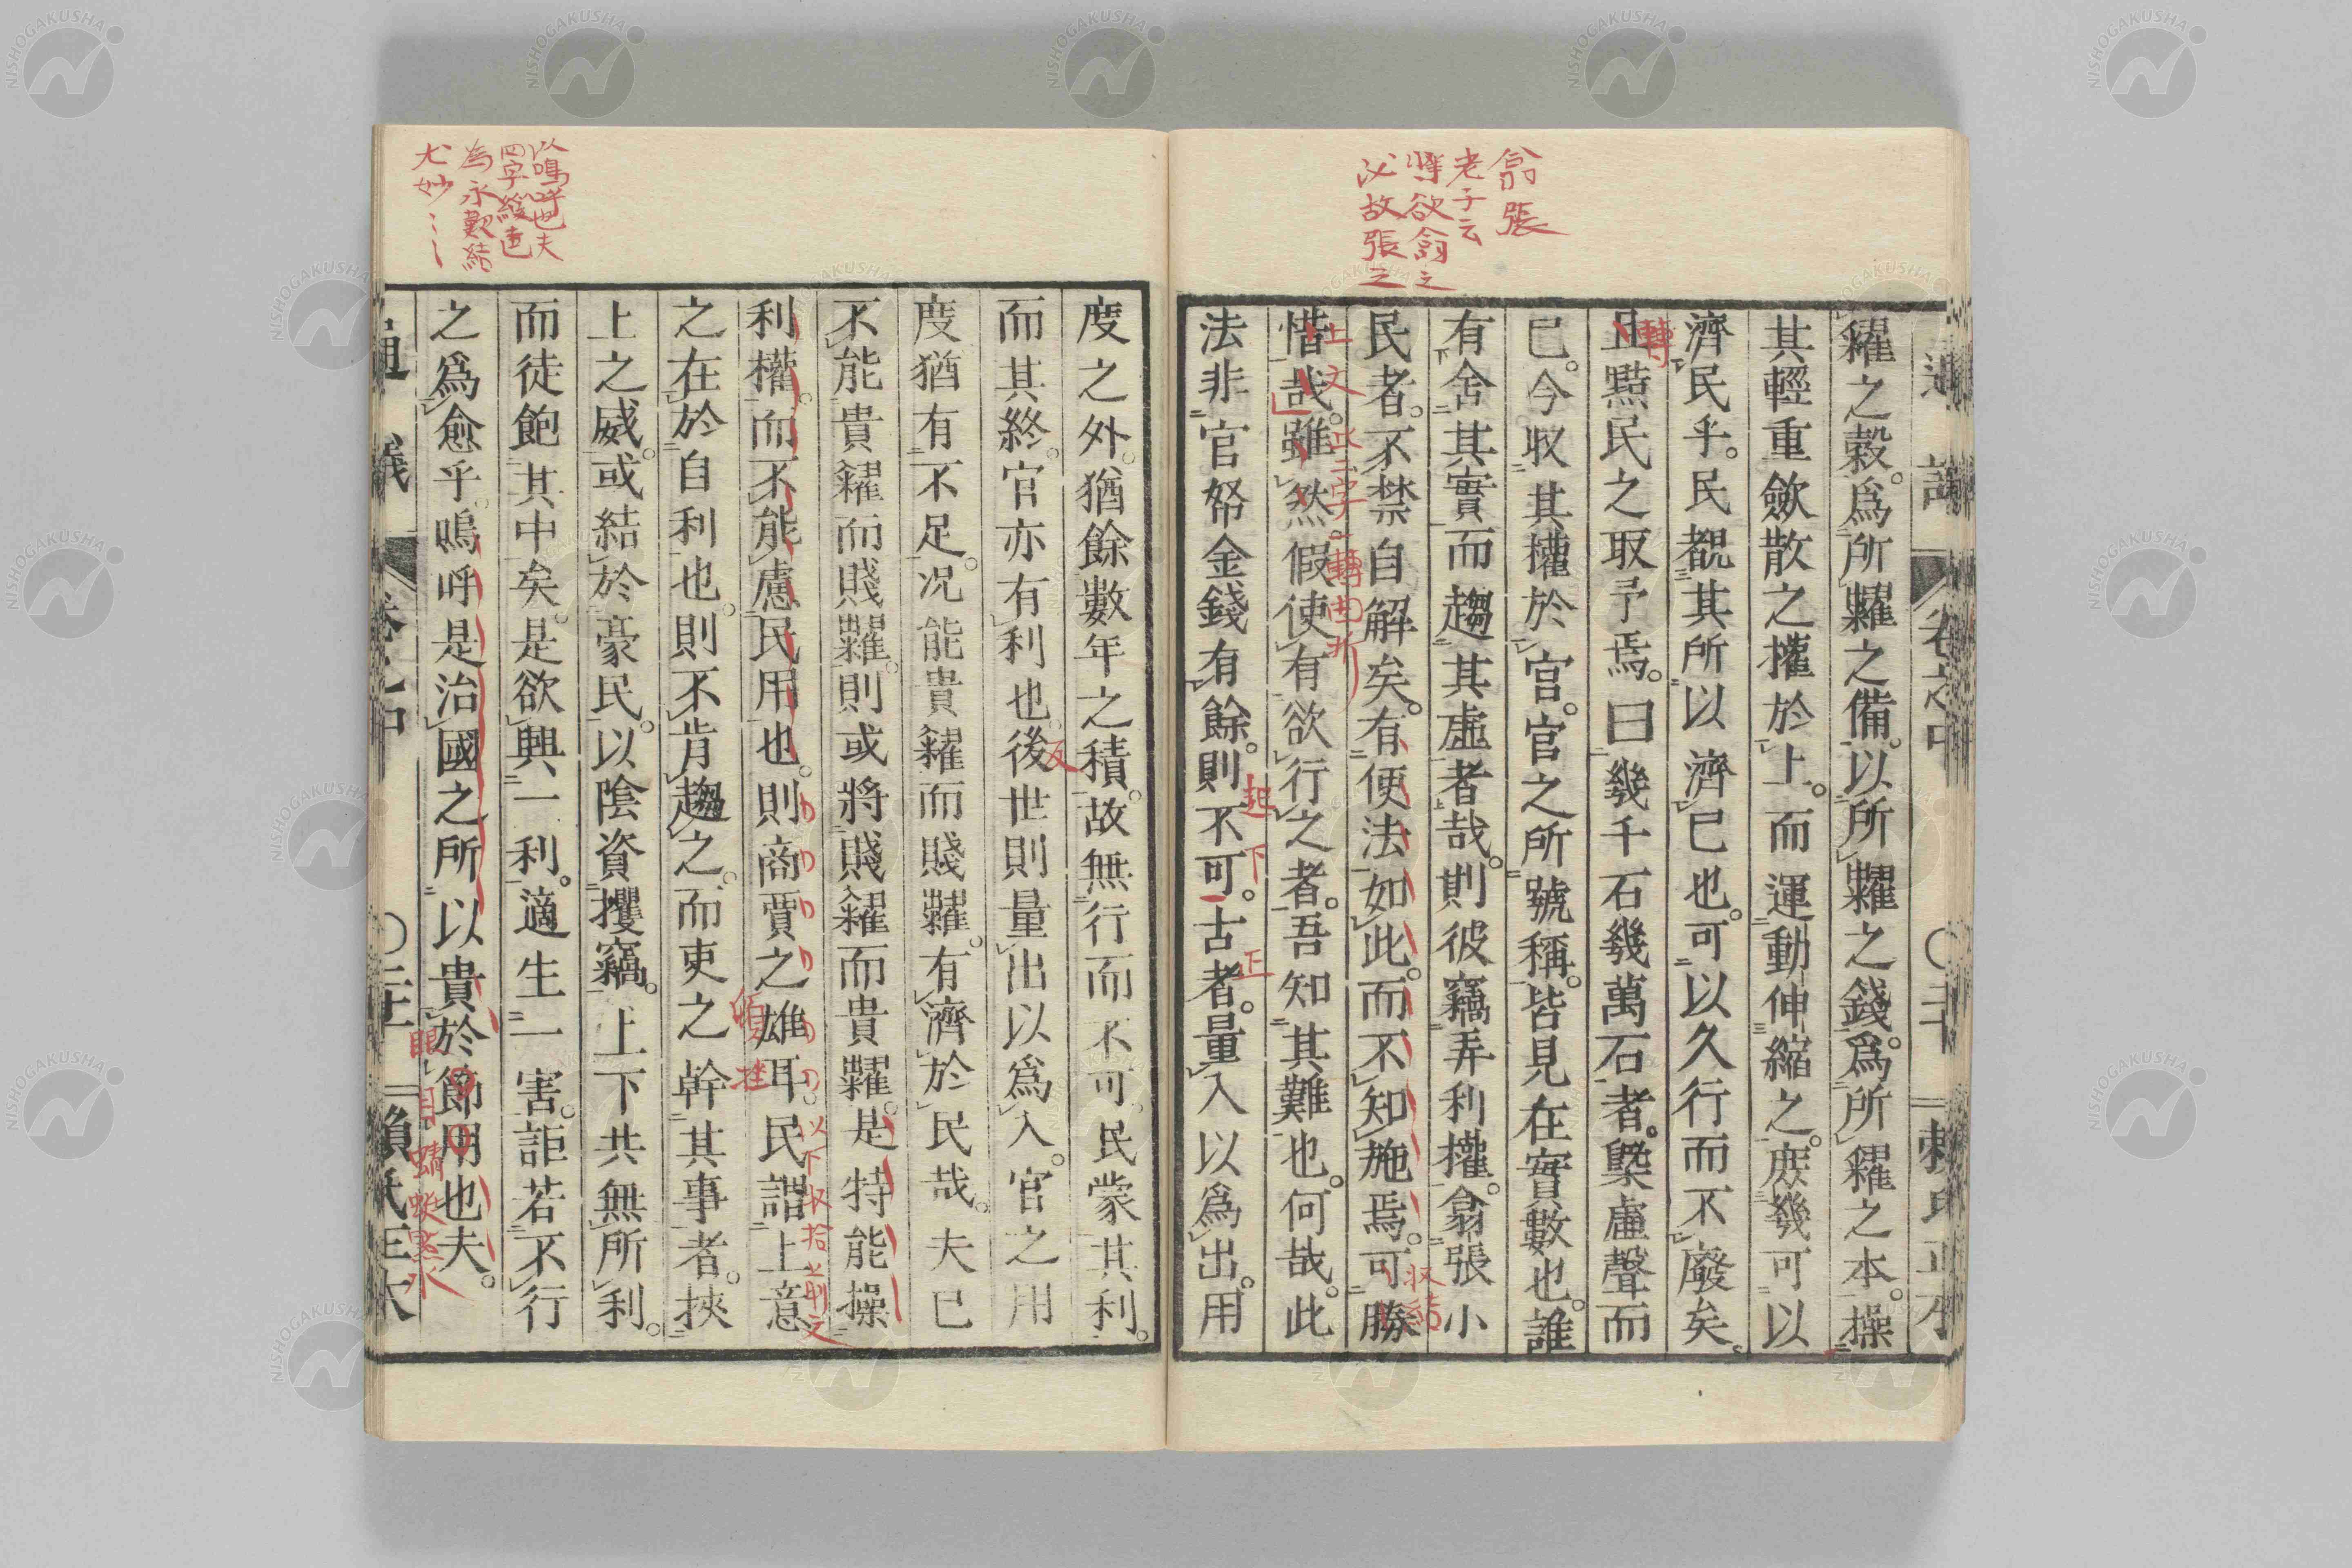 翕張
老子云
將欲翕之
必故張之
糴之穀。爲所糶之備。以所糶之錢。爲所糴之本。操
其輕重斂散之權於上。而運動伸縮之。庶幾可以
濟民乎。民覩其所以濟已也。可以久行而不廢矣。
且㸃民之取予焉。曰幾千石幾萬石者。槩虛聲而
已。今收其權於官。官之所號稱。皆見在實數也。誰
有舍其實而趨其虛者哉。則彼竊弄利權。翕張小
民者。不禁自解矣。有便法如此。而不知施焉。可勝
惜哉。雖然假使有欲行之者。吾知其難也。何哉。此
法非官帑金錢有餘。則不可。古者。量入以爲出。用
轉
上文
此三字。轉曲折
收結
起下
正
以嗚呼也夫
四字
為永歎結
尤妙
度之外。猶餘數年之積。故無行而不可。民蒙其利。
而其終。官亦有利也。後世則量出以爲入。官之用
度猶有不足。况能貴糴而賤糶。有濟於民哉。夫已
不能貴糴而賤糶。則或將賤糴而貴糶。是特能操
利權。而不能慮民用也。則商賈之雄耳。民謂上意
之在於自利也。則不肯趨之。而吏之幹其事者。挾
上之威。或結於豪民。以陰資攫竊。上下共無所利。
而徒飽其中矣。是欲興一利。適生一害。詎若不行
之爲愈乎。嗚呼是治國之所以貴於節用也夫。
反
頓挫
以下收拾前文
眼目蜻蜓點水
通議
卷之中